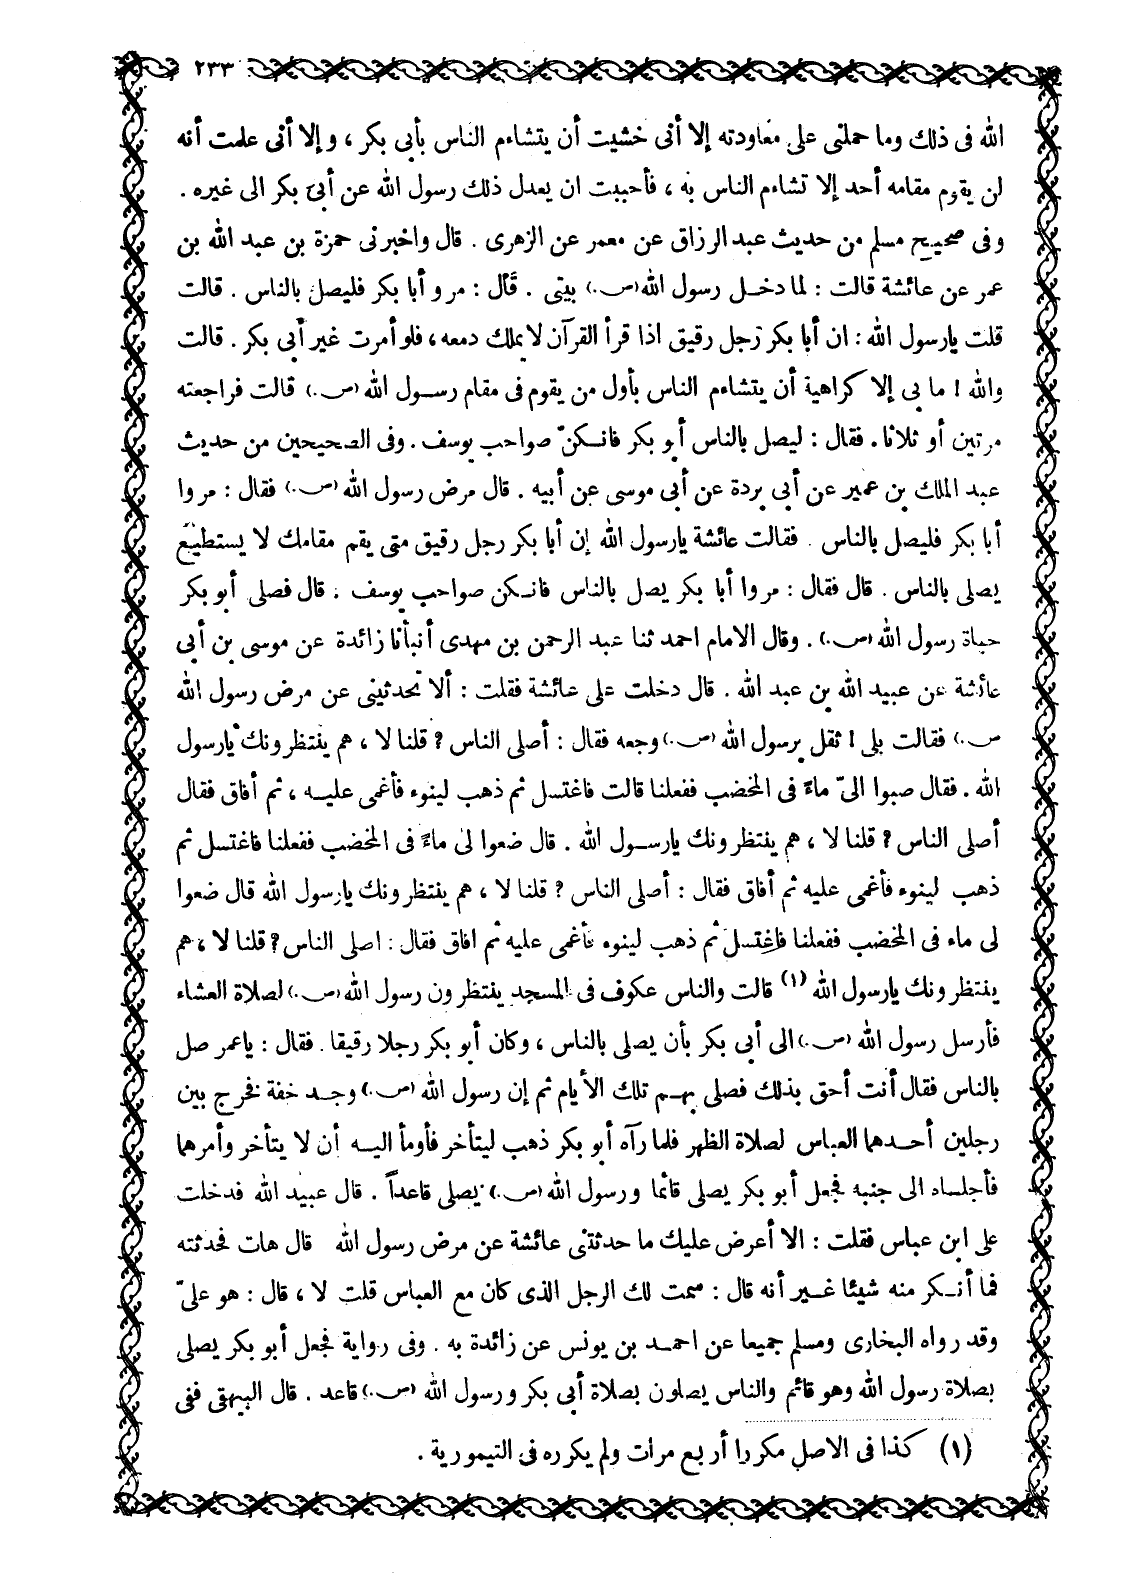 ٢٣٣
الله فى ذلك وما حملنى على مغاودته إلا أنى خشيت أن يتشاءم الناس بأبى بكر ، وإلا أنى علمت أنه
لن يقوم مقامه أحد إلا تشاءم الناس به ، فأحببت ان يعدل ذلك رسول الله عن أبى بكر الى غيره .
وفى صحيح مسلم من حديث عبد الرزاق عن معمر عن الزهرى . قال واخبرنى حمزة بن عبد الله بن
عمر عن عائشة قالت : لما دخل رسول الله (ص.) بيتى . قال : مروا أبا بكر فليصل بالناس . قالت
قلت يارسول الله : ان أبا بكر رجل رقيق اذا قرأ القرآن لا يملك دمعه ، فلو أمرت غير أبى بكر . قالت
والله ! ما بى إلا كراهية أن يتشاءم الناس بأول من يقوم فى مقام رسول الله (ص.) قالت فراجعته
مرتين أو ثلاثا . فقال : ليصل بالناس أبو بكر فانكنّ صواحب يوسف . وفى الصحيحين من حديث
عبد الملك بن عمير عن أبى بردة عن أبى موسى عن أبيه . قال مرض رسول الله (ص.) فقال : مروا
أبا بكر فليصل بالناس . فقالت عائشة يارسول الله إن أبا بكر رجل رقيق متى يقم مقامك لا يستطيع
يصلى بالناس . قال فقال : مروا أبا بكر يصل بالناس فانكن صواحب يوسف . قال فصلى أبو بكر
حياة رسول الله (ص.) . وقال الامام احمد ثنا عبد الرحمن بن مهدى أنبأنا زائدة عن موسى بن أبى
عائشة عن عبيد الله بن عبد الله . قال دخلت على عائشة فقلت : ألا تحدثينى عن مرض رسول الله
ص.) فقالت بلى ! ثقل برسول الله (ص.) وجعه فقال : أصلى الناس ? قلنا لا ، هم ينتظرونك يارسول
الله . فقال صبوا الىّ ماءً فى المخضب ففعلنا قالت فاغتسل ثم ذهب لينوء فأغمى عليه ، ثم أفاق فقال
أصلى الناس ? قلنا لا ، هم ينتظرونك يارسول الله . قال ضعوا لى ماءً فى المخضب ففعلنا فاغتسل ثم
ذهب لينوء فأغمى عليه ثم أفاق فقال : أصلى الناس ? قلنا لا ، هم ينتظرونك يارسول الله قال ضعوا
لى ماء فى المخضب ففعلنا فاغتسل ثم ذهب لينوء فأغمى عليه ثم افاق فقال : اصلى الناس ? قلنا لا ، هم
ينتظرونك يارسول الله (١) قالت والناس عكوف فى المسجد ينتظرون رسول الله (ص.) لصلاة العشاء
فأرسل رسول الله (ص.) الى أبى بكر بأن يصلى بالناس ، وكان أبو بكر رجلا رقيقا . فقال : ياعمر صل
بالناس فقال أنت أحق بذلك فصلى بهم تلك الأيام ثم إن رسول الله (ص.) وجد خفة فخرج بين
رجلين أحدهما العباس لصلاة الظهر فلما رآه أبو بكر ذهب ليتأخر فأومأ اليه أن لا يتأخر وأمرهما
فأجلساه الى جنبه فجعل أبو بكر يصلى قائما ورسول الله (ص.) يصلى قاعداً . قال عبيد الله فدخلت
على ابن عباس فقلت : الا أعرض عليك ما حدثتنى عائشة عن مرض رسول الله قال هات فحدثته
فما أنكر منه شيئا غير أنه قال : سمت لك الرجل الذى كان مع العباس قلت لا ، قال : هو علىّ
وقد رواه البخارى ومسلم جميعا عن احمد بن يونس عن زائدة به . وفى رواية فجعل أبو بكر يصلى
بصلاة رسول الله وهو قائم والناس يصلون بصلاة أبى بكر ورسول الله (ص.) قاعد . قال البيهقى ففى
(١) كذا فى الاصل مكررا أربع مرات ولم يكرره فى التيمورية .